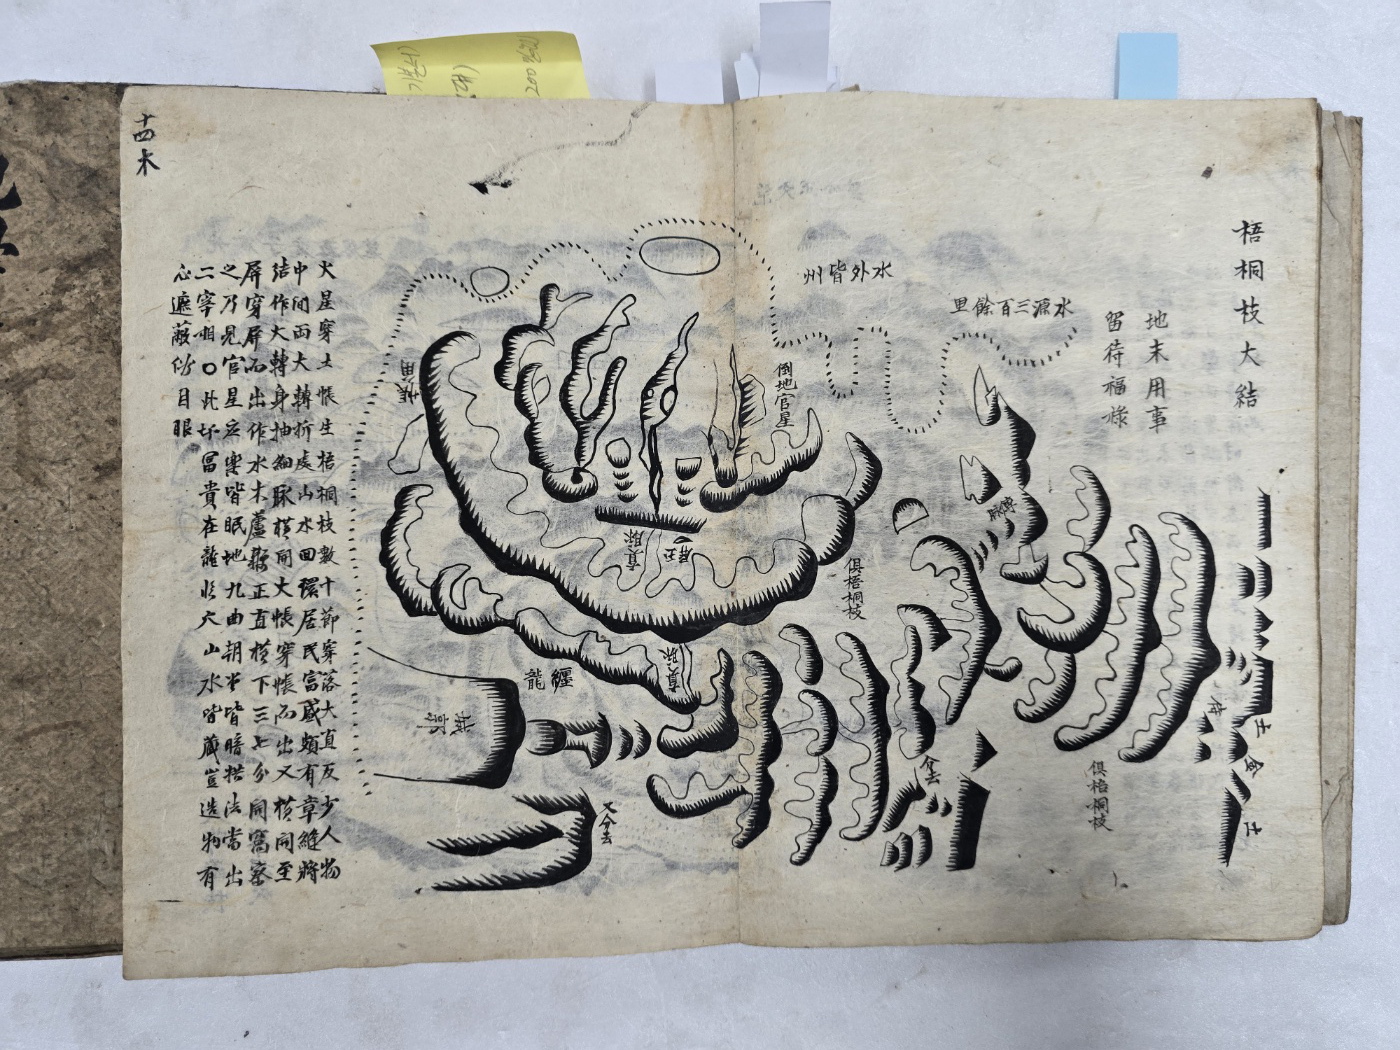 梧桐枝大結
地未用事
留待福祿
水源三百餘里
水外皆州
倒地官星
俱梧桐枝
俱梧桐枝
土
金
土
分去
又分去
纏龍
真脉
真脉
帳角
火星穿土帳生梧桐枝數十節穿落大直反少人物
中間両大轉折處山水回環居民富盛頗有章縫將
結作大轉身抽細脉橫同大帳穿帳而出又橫同至
屏穿屏而出作水木蘆鞭正直橫下三七分同窩察
之乃見官星應樂皆眠地九曲朝岸皆暗拱法當出
二宰相○此坏冨貴在龍水大山水皆蔵豈造物有
心遮蔽俗目眼
十四木